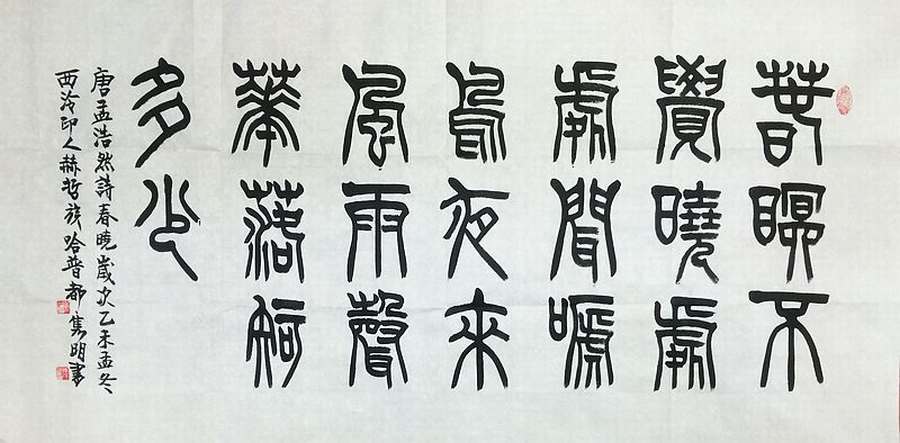 春眠不
覺曉處
處聞嗁
鳥夜來
風雨聲
華落知
多少
唐孟浩然詩春曉歲次乙未孟冬
西泠印人赫哲族哈普都隽明書